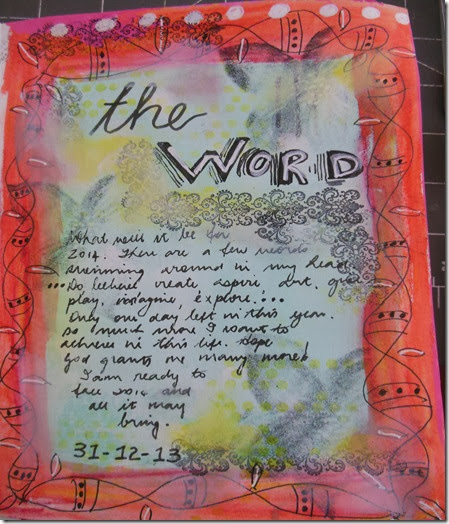 the
WORD
What will it be for
2014. There are a few words
swimming around in my head
...Do, believe, create, aspire, art, give
play, imagine, explore!...
Only one day left in this year.
So much more I want to
achieve in this life. Hope
God grants me many more!
I am ready to
face 2014 and
all it may
bring.
31-12-13